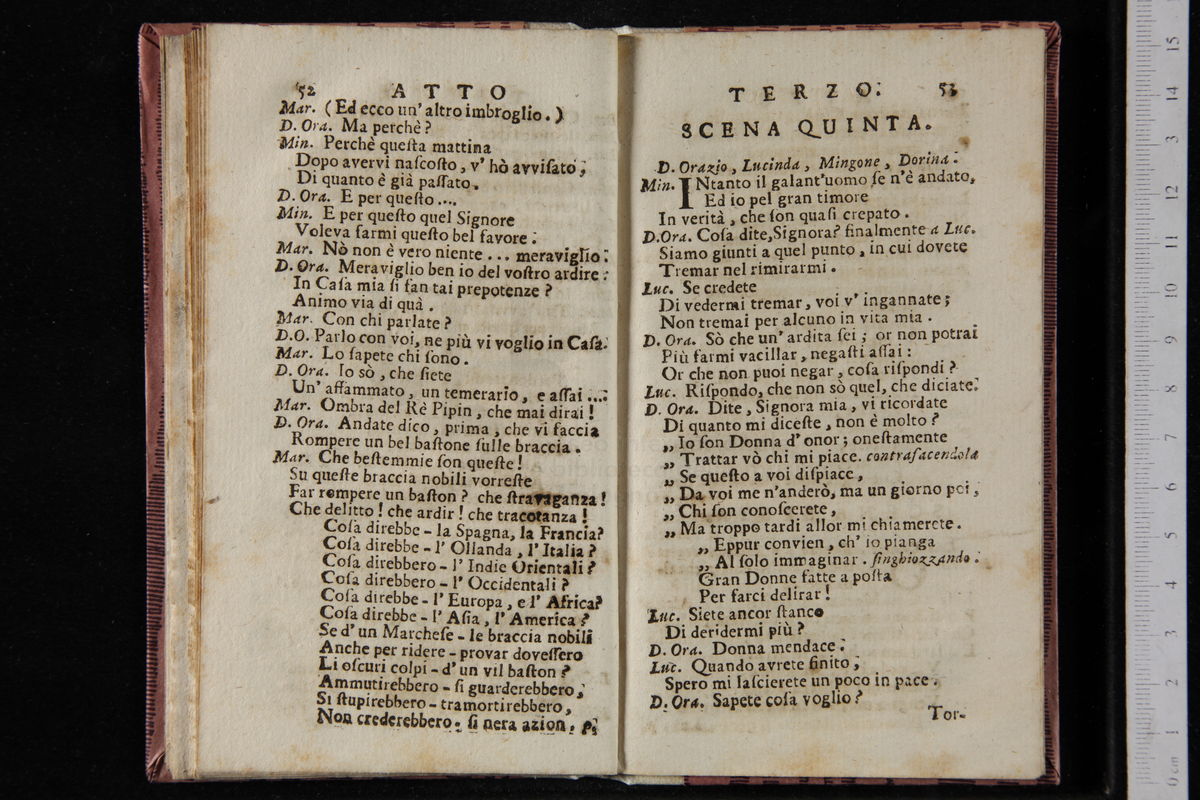 52 ATTO
Mar. (Ed ecco un' altro imbroglio.)
D. Ora. Ma perchè?
Min. Perchè queſta mattina
Dopo avervi naſcoſto, v' hò avviſato;
Di quanto è già paſſato.
D. Ora. E per queſto ....
Min. E per queſto quel Signore
Voleva farmi queſto bel favore.
Mar. Nò non è vero niente ... meraviglio.
D. Ora. Meraviglio ben io del voſtro ardire:
In Caſa mia ſi fan tai prepotenze?
Animo via di quà.
Mar. Con chi parlate?
D.O. Parlo con voi, ne più vi voglio in Caſa.
Mar. Lo ſapete chi ſono.
D. Ora. Io sò, che ſiete
Un' affammato, un temerario, e aſſai ...:
Mar. Ombra del Rè Pipin, che mai dirai!
D. Ora. Andate dico, prima, che vi faccia
Rompere un bel baſtone ſulle braccia.
Mar. Che beſtemmie ſon queſte!
Su queſte braccia nobili vorreſte
Far rompere un baſton? che ſtravaganza!
Che delitto! che ardir! che tracotanza!
Coſa direbbe - la Spagna, la Francia?
Coſa direbbe - l' Ollanda, l' Italia?
Coſa direbbero - l' Indie Orientali?
Coſa direbbero - l' Occidentali?
Coſa direbbe - l' Europa, e l' Africa?
Coſa direbbe - l' Aſia, l' America?
Se d' un Marcheſe - le braccia nobili
Anche per ridere - provar doveſſero
Li oſcuri colpi - d' un vil baſton?
Ammutirebbero - ſi guarderebbero,
Si ſtupirebbero - tramortirebbero,
Non crederebbero - ſi nera azion. p;
TERZO. 53
SCENA QUINTA.
D. Orazio, Lucinda, Mingone, Dorina.
Min. INtanto il galant'uomo ſe n'è andato,
Ed io pel gran timore
In verità, che ſon quaſi crepato.
D.Ora. Coſa dite, Signora? finalmente a Luc.
Siamo giunti a quel punto, in cui dovete
Tremar nel rimirarmi.
Luc. Se credete
Di vedermi tremar, voi v' ingannate;
Non tremai per alcuno in vita mia.
D. Ora. Sò che un' ardita ſei; or non potrai
Più farmi vacillar, negaſti aſſai:
Or che non puoi negar, coſa riſpondi?
Luc. Riſpondo, che non sò quel, che diciate.
D. Ora. Dite, Signora mia, vi ricordate
Di quanto mi diceſte, non è molto?
„ Io ſon Donna d' onor; oneſtamente
„ Trattar vò chi mi piace. contrafacendola
„ Se queſto a voi diſpiace,
„ Da voi me n'anderò, ma un giorno poi,
„ Chi ſon conoſcerete,
„ Ma troppo tardi allor mi chiamerete.
„ Eppur convien, ch' io pianga
„ Al ſolo immaginar. ſinghiozzando.
Gran Donne fatte a poſta
Per farci delirar!
Luc. Siete ancor ſtanco
Di deridermi più?
D. Ora. Donna mendace.
Luc. Quando avrete finito;
Spero mi laſcierete un poco in pace.
D. Ora. Sapete coſa voglio?
Tor-